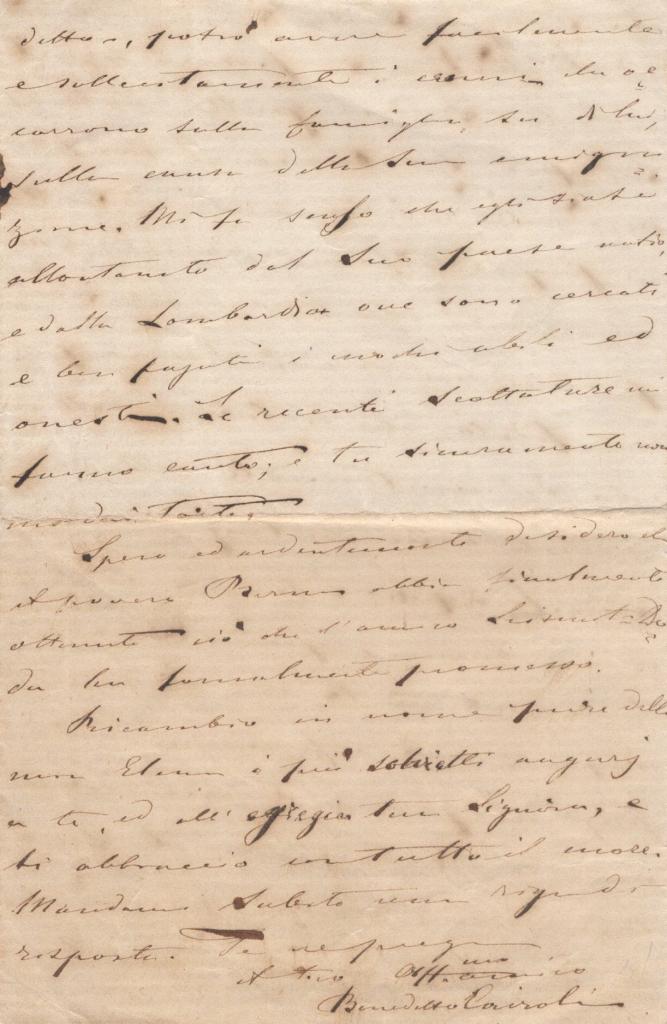 detto, potrò avere facilmente
e sollecitamente i cenni che oc=
corrono sulla famiglia su di lui,
sulla causa della sua emigra=
zione. Mi fa senso che egli siasi
allontanato dal suo paese natio,
e dalla Lombardia ove sono cercati
e ben pagati i medici abili ed
onesti. Le recenti scottature mi
fanno cauto; e tu sicuramente non
mi darai torto.
Spero ed ardentemente desidero che
il povero abbia finalmente
ottenuto ciò che l'amico Seismit=Do=
da ha formalmente promesso.
Ricambio in nome pure della
mia Elena i più schietti augurj
a te, ed all'egregia tua Signora, e
ti abbraccio con tutto il cuore.
Mandami subito una riga di
risposta. Te ne prego
Il tuo Aff.mo amico
Benedetto Cairoli